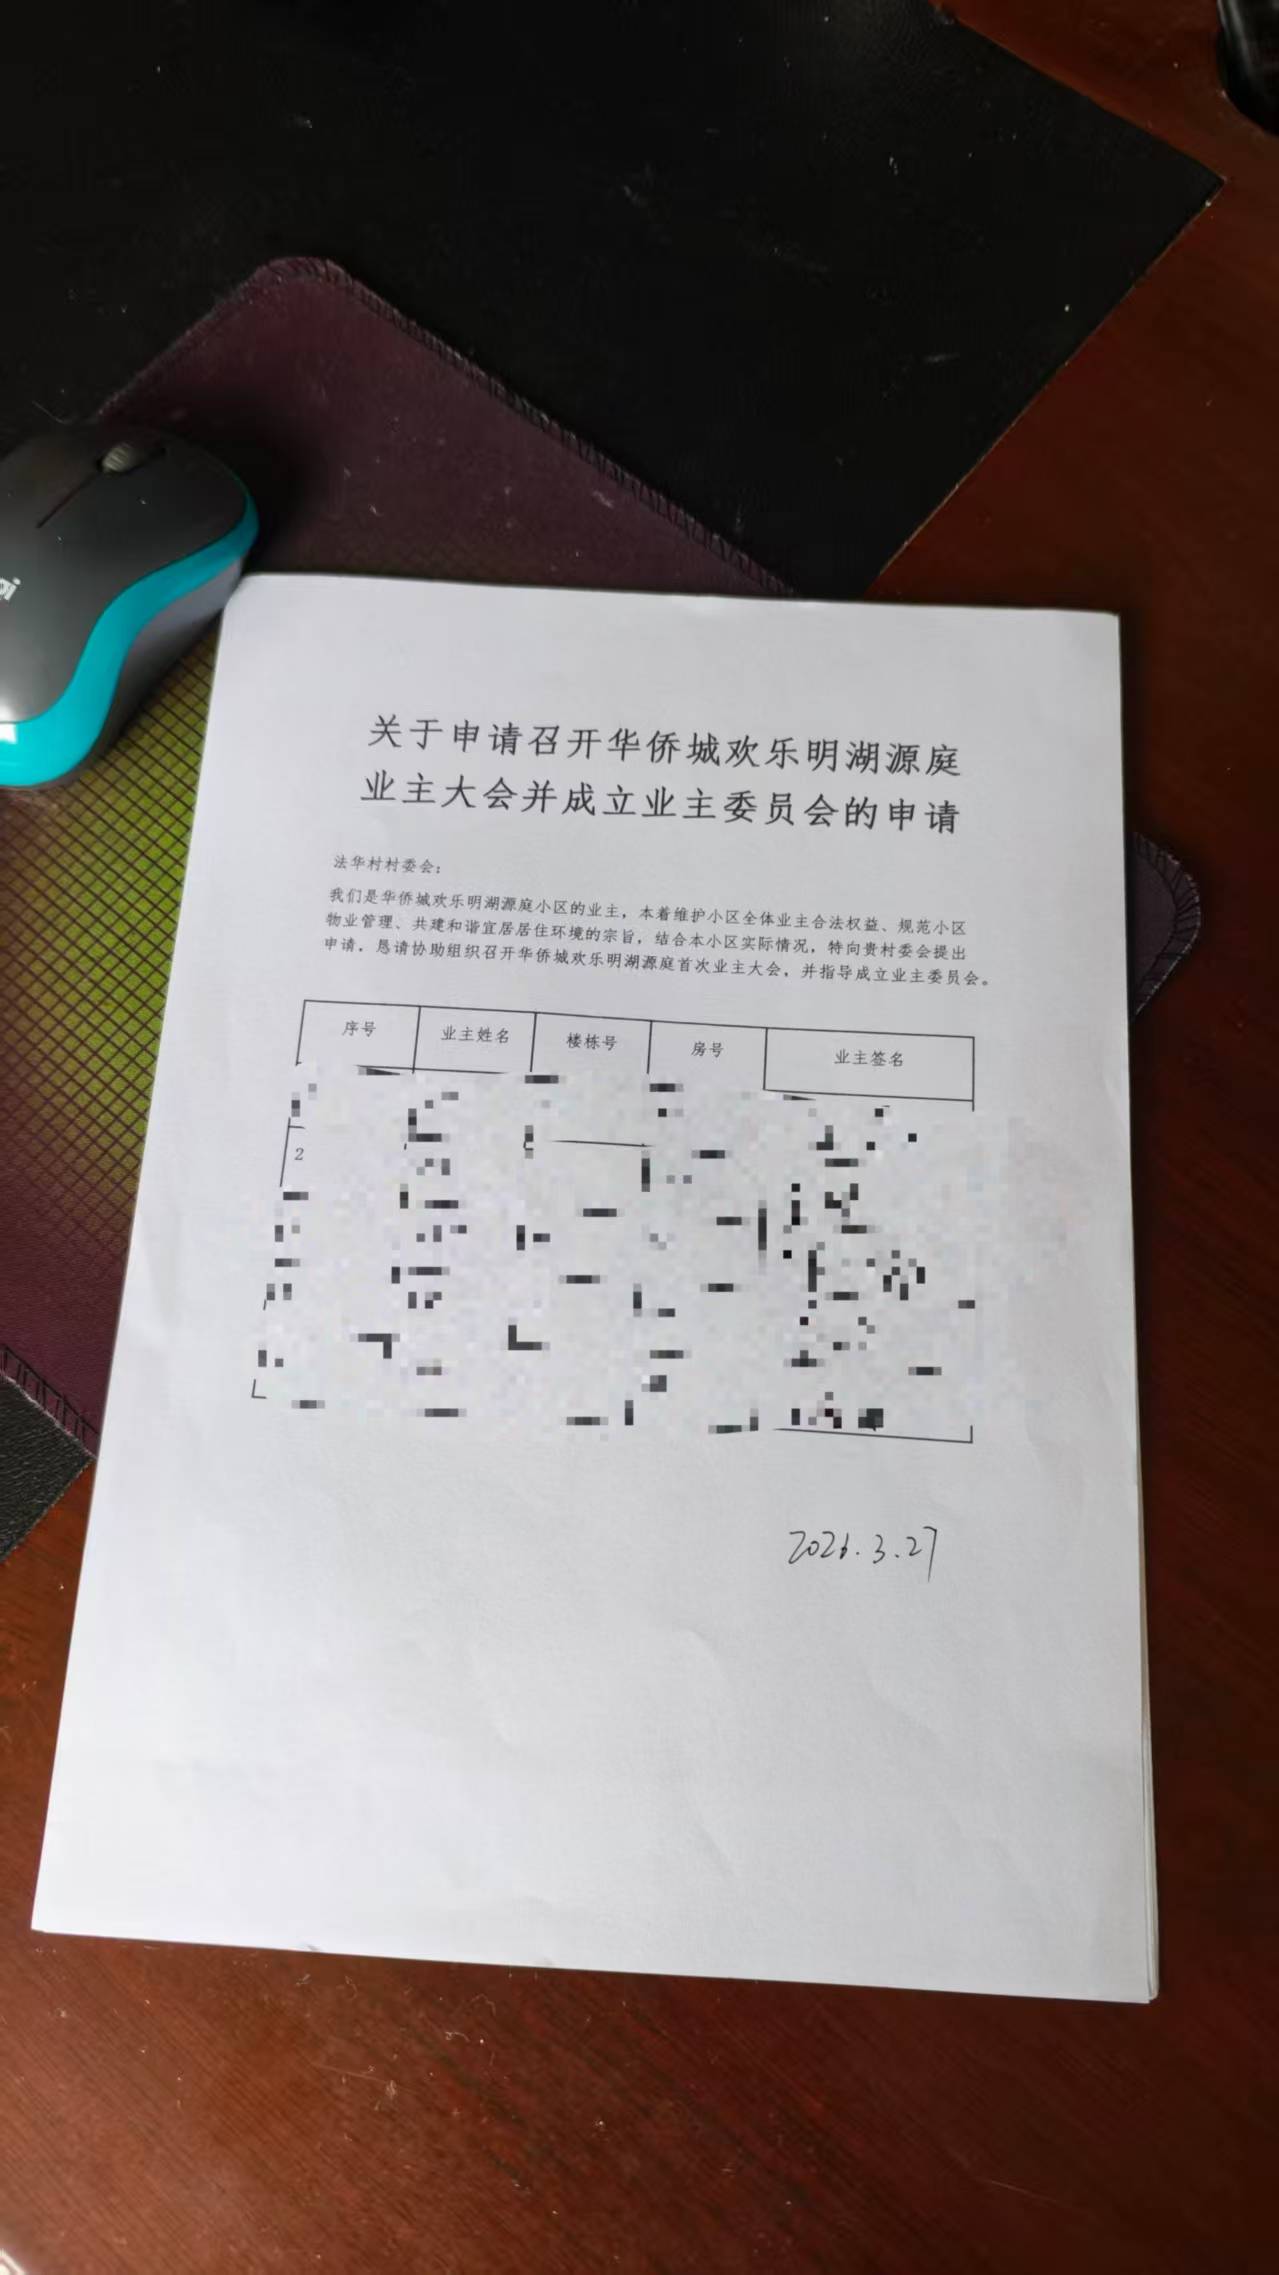 关于申请召开华侨城欢乐明湖源庭
业主大会并成立业主委员会的申请
法华村村委会：
我们是华侨城欢乐明湖源庭小区的业主，本着维护小区全体业主合法权益、规范小区
物业管理、共建和谐宜居居住环境的宗旨，结合本小区实际情况，特向贵村委会提出
申请，恳请协助组织召开华侨城欢乐明湖源庭首次业主大会，并指导成立业主委员会。
序号 业主姓名 楼栋号 房号 业主签名
2
2026.3.27